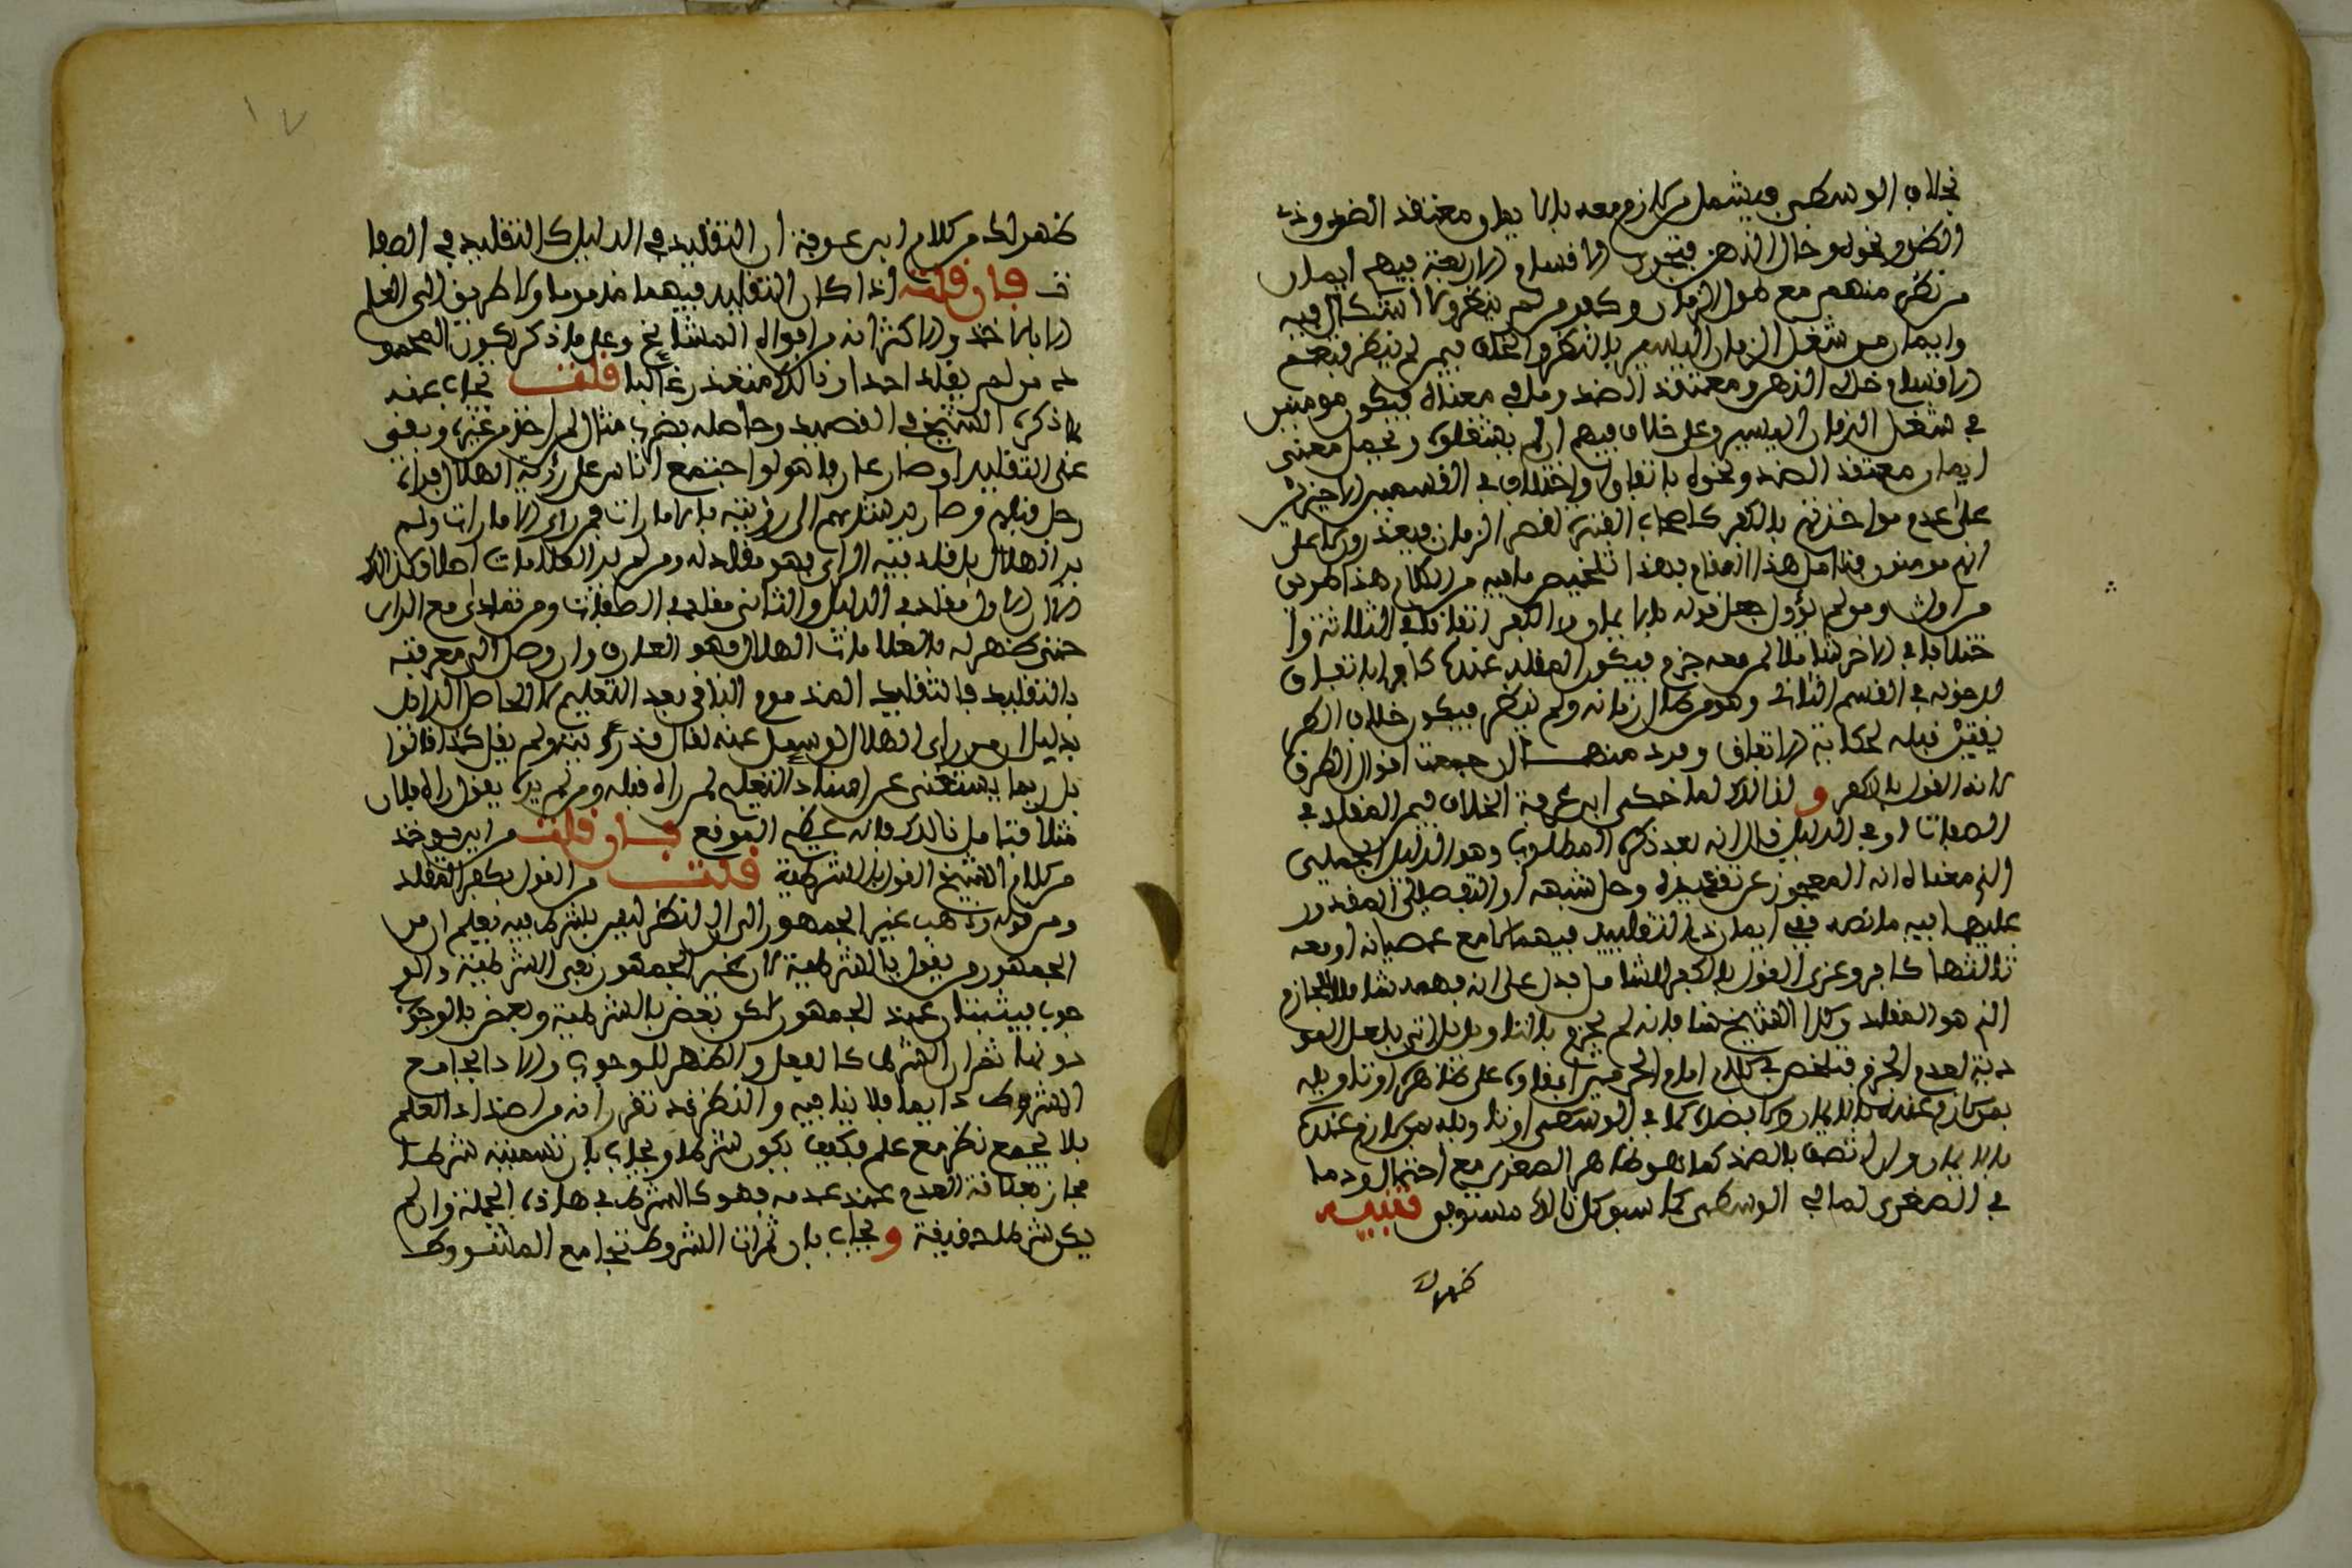 بخلاف الوسطى فيشمل من لازم معه بالايمان معتقد الضد وذى
الظن ونحوه وخال الذهن فتجرى الاقسام الاربعة فيهم ايمان
من نظر منهم مع طول الزمان وكفر من لم ينظر ولا اشكال فيه
وايمان من شغل الزمان اليسير بالنظر والخلاف فيمن لم ينظر فتعم
الاقسام خالى الذهن ومعتقد الضد وما فى معناه فيكون مومنين
فى شغل الزمان اليسير وعلى خلاف فيهم ان لم يشغلوه ويحمل معنى
ايمان معتقد الضد ونحوه باتفاق او اختلاف فى القسمين الاخيرين
على عدم مواخذتهم بالكفر كاصحاب الفترة لقصر الزمان فيعذرون لا على
انهم مومنون فتامل هذا المقام فهذا تلخيص ما فيه من الكلام هذا طريق
من اول ومن لم يؤول جعل قوله بالايمان والكفر اتفاقا فى الثلاثة وا
ختلافا فى الاخر شاملا لمن معه جزم فيكون المقلد عنده كافرا باتفاق
لدخوله فى القسم الثانى وهو من طال زمانه ولم ينظر فيكون خلاف الطر
يقتين قبله لحكاية الاتفاق ومرد منهما الى جمعت اقوال الطرق
لانه القول بالكفر ولذالك لما حكى ابن عرفة الخلاف فيمن المقلد فى
الصفات او فى الدليل قال انه بعد ذكره المطلوب وهو الدليل الجملى
الذى معناه انه المعجوز عن تقريره وحل شبهه او التفصيلى المقدور
عليهما فيه ما نصه ففى ايمان ذى التقليد فيهما لا مع عصيانه او معه
ثالثها كافر وعزى القول بالكفر للشامل فدل على انه فهمه شاملا للجازم
الذى هو المقلد وكذا الشيخ هنا فانه لم يجزم بالتاويل الاتى بلعل المو
دية لعدم الجزم فتلخص فى كلام امام الحرمين ابقاوه على ظاهره او تاويله
بمن لازم عنده بالايمان ولا بضده كما فى الوسطى او تاويله بمن لازم عنده
بالايمان وان اتصف بالضد كما هو ظاهر الصغرى مع احتمال رد ما
فى الصغرى لما فى الوسطى كما سبق كل ذالك مستوفى تنبيه
ظهر لك
١٧
ظهر لك من كلام ابن عرفة ان التقليد فى الدليل كالتقليد فى الصفا
ت فان قلت اذا كان التقليد فيهما مذموما ولا طريق الى العلم
الا بالاخذ والاكثر انه من اقواله المشايخ وعلى ما ذكر يكون المحمو
د من لم يقلد احدا وذالك متعذر غالبا قلت يجاب عنه
بما ذكره الشيخ فى القصيد وحاصله بضرب مثال لمن اخذ من غيره وبقى
على التقليد او صار عارفا هو لو اجتمع الناس على رؤية الهلال فرءاه
رجل قبلهم وصار يرشدهم الى رؤيته بالامارات فمن راى الامارات ولم
ير الهلال بل قلد فيه الراى فهو مقلد له ومن لم ير العلامات اصلا وكذالك
الا ان الاول مقلد فى الدليل والثانى مقلد فى الصفات ومن تمادى مع الراى
حتى ظهر له بالعلامات الهلال فهو العارف وان وصل الى معرفته
بالتقليد فالتقليد المذموم الباقى بعد التعليم لا الحاصل الزايل
بدليل ان من راى الهلال لو سئل عنه لقال قد رايته ولم يقل كذا قالوا
بل ربما يستغنى عن اسناد التعليم لمن راه قبله ومن لم يره يقول راه فلان
مثلا فتامل ذالك فانه عظيم الموقع فان قلت من اين يوخذ
من كلام الشيخ القول بالشرطية قلت من القول بكفر المقلد
ومن قوله وذهب غير الجمهور الى ان النظر ليس بشرط فيه فيعلم ان من
الجمهور من يقول بالشرطية لان غير الجمهور نفى الشرطية والو
جوب فيثبتان عند الجمهور لاكن بعض بالشرطية وبعض بالوجوب
دونها ثم ان الشرط كالفعل والظهر للوجوب والاداء يجامع
المشروط دايما فلا ينافيه والنظر قد تقرر انه من اضداد العلم
فلا يجمع نظر مع علم فكيف يكون شرطا ويجاب بان تسميته شرطا
مجاز بعلاقة العدم عند عدمه فهو كالشرط فى هاذه الجملة وان لم
يكن شرطا حقيقة ويجاب بان ثمرات الشروط تجامع المشروط